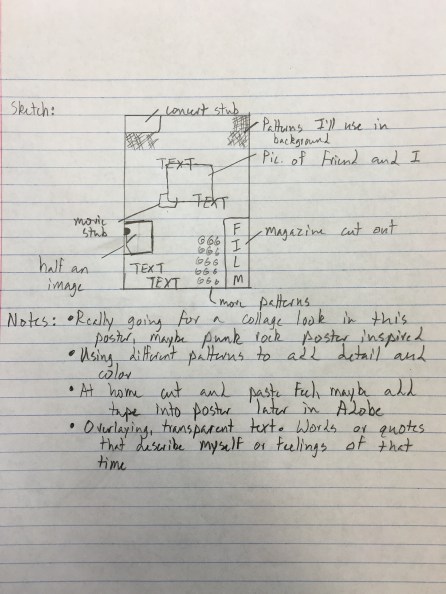 Sketch:
concert stub
Patterns I'll use in
background
TEXT
Pic. of Friend and I
TEXT
movie
stub
FILM
magazine cut out
half an
image
666
666
666
666
666
TEXT
TEXT
more patterns
Notes: • Really going for a collage look in this
poster, maybe punk rock poster inspired
• Using different patterns to add detail and
color
• At home cut and paste feel, maybe add
tape into poster later in Adobe
• Overlaying, transparent text. Words or quotes
that describe myself or feelings of that
time